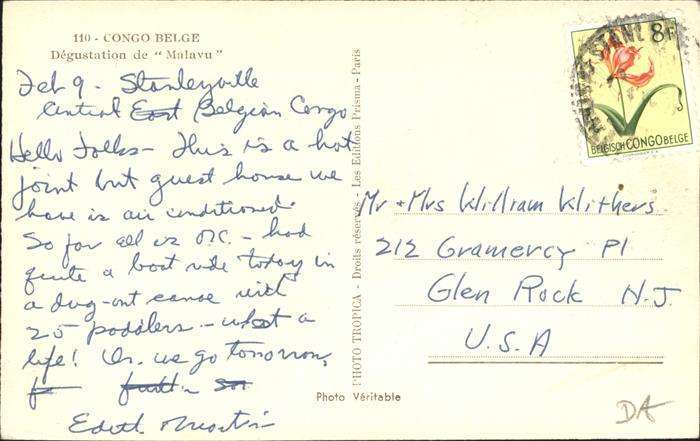 110 - CONGO BELGE
Dégustation de "Malavu"
Feb 9 - Stanleyville
Central East Belgian Congo
Hello Folks - This is a hot
joint but guest house we
have is air conditioned.
So far all is O.K. - had
quite a boat ride today in
a dug-out canoe with
25 paddlers - what a
life! On we go tomorrow,
Edith Martin
PHOTO TROPICA - Droits réservés - Les Editions Prisma - Paris
8F
BELGISCH CONGO BELGE
Mr + Mrs William Withers
212 Gramercy Pl
Glen Rock N.J.
U.S.A
Photo Véritable
DA